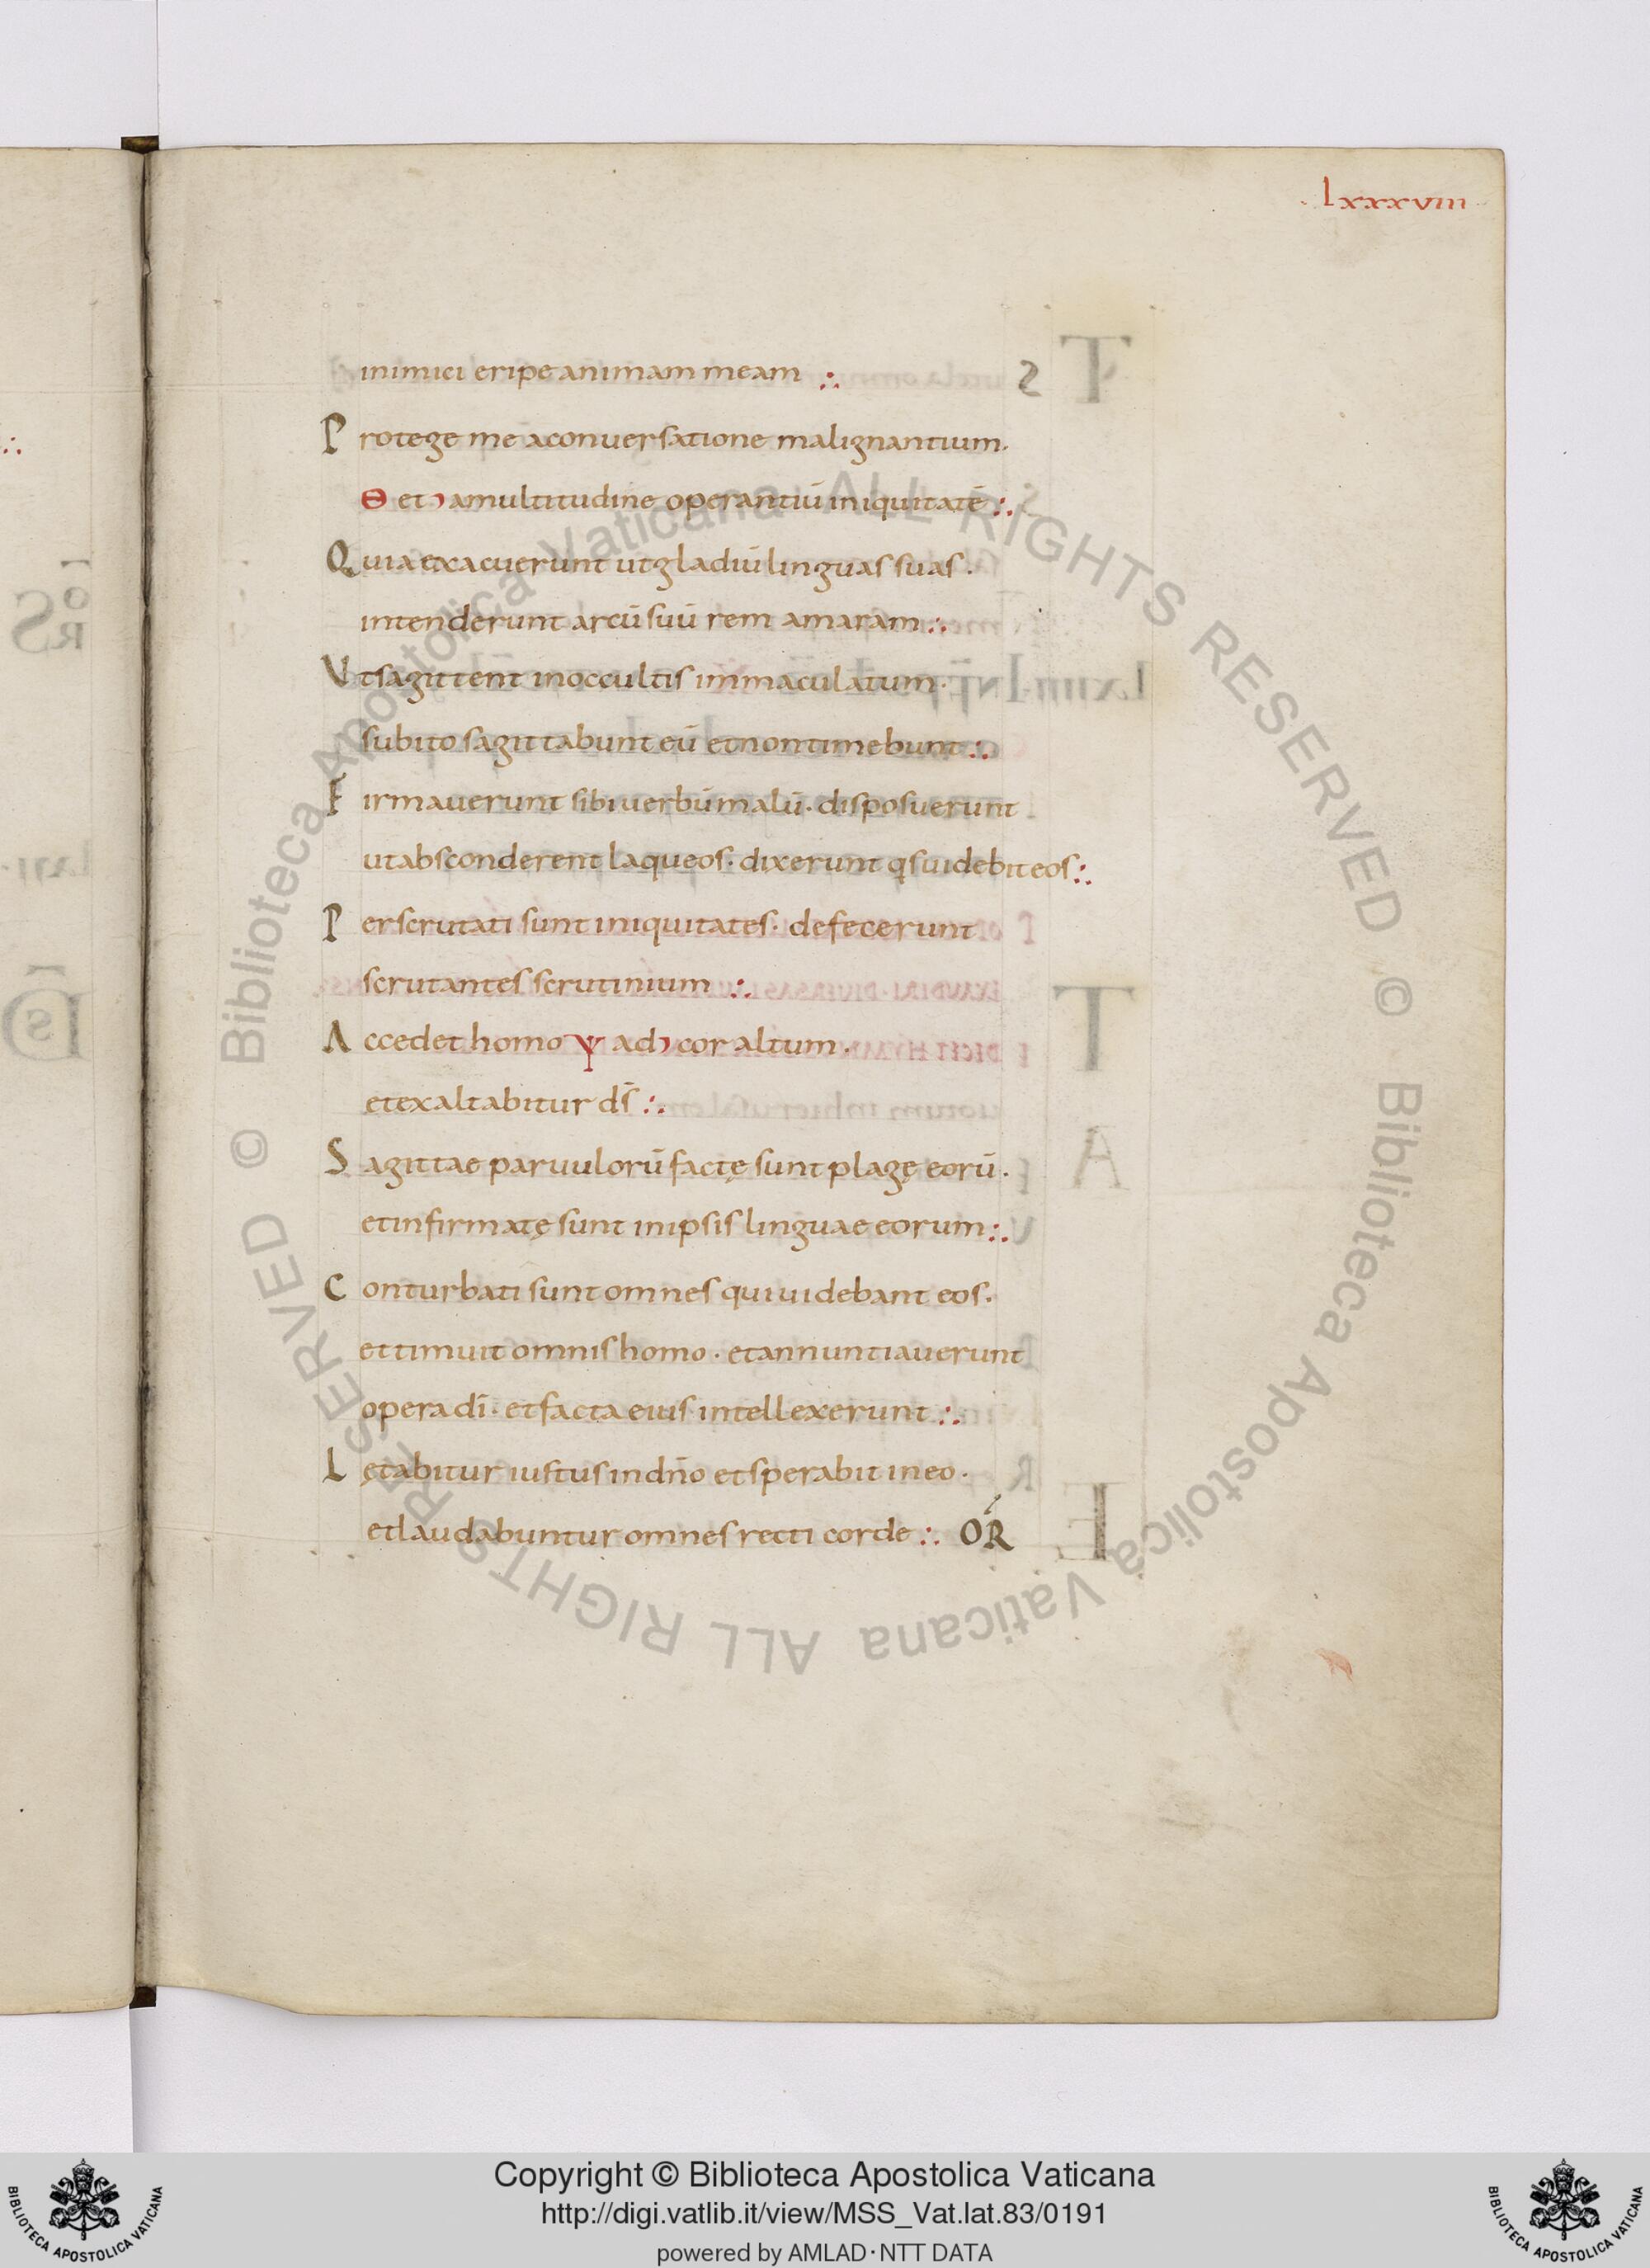 lxxxviii
inimici eripe animam meam :.
Protege me a conuersatione malignantium.
Ɵ et· a multitudine operantiū iniquitatē :.
Quia exacuerunt ut gladiū linguas suas.
intenderunt arcū suū rem amaram :.
Ut sagittent in occultis immaculatum.
subito sagittabunt eū et non timebunt :.
Firmauerunt sibi uerbū malū. disposuerunt
ut absconderent laqueos. dixerunt qs uidebit eos :.
Perscrutati sunt iniquitates. defecerunt
scrutantes scrutinium :.
Accedet homo Ƴ ad· cor altum.
et exaltabitur ds̄ :.
Sagittae paruulorū factę sunt plagę eorū.
et infirmatę sunt in ipsis linguae eorum :.
Conturbati sunt omnes qui uidebant eos.
et timuit omnis homo. et annuntiauerunt
opera dī. et facta eius intellexerunt :.
Lętabitur iustus in dn̄o et sperabit in eo.
et laudabuntur omnes recti corde :. OR̄
Biblioteca Apostolica Vaticana ALL RIGHTS RESERVED © Biblioteca Apostolica Vaticana ALL RIGHTS RESERVED ©
Copyright © Biblioteca Apostolica Vaticana
http://digi.vatlib.it/view/MSS_Vat.lat.83/0191
powered by AMLAD·NTT DATA
BIBLIOTECA APOSTOLICA VATICANA
BIBLIOTECA APOSTOLICA VATICANA